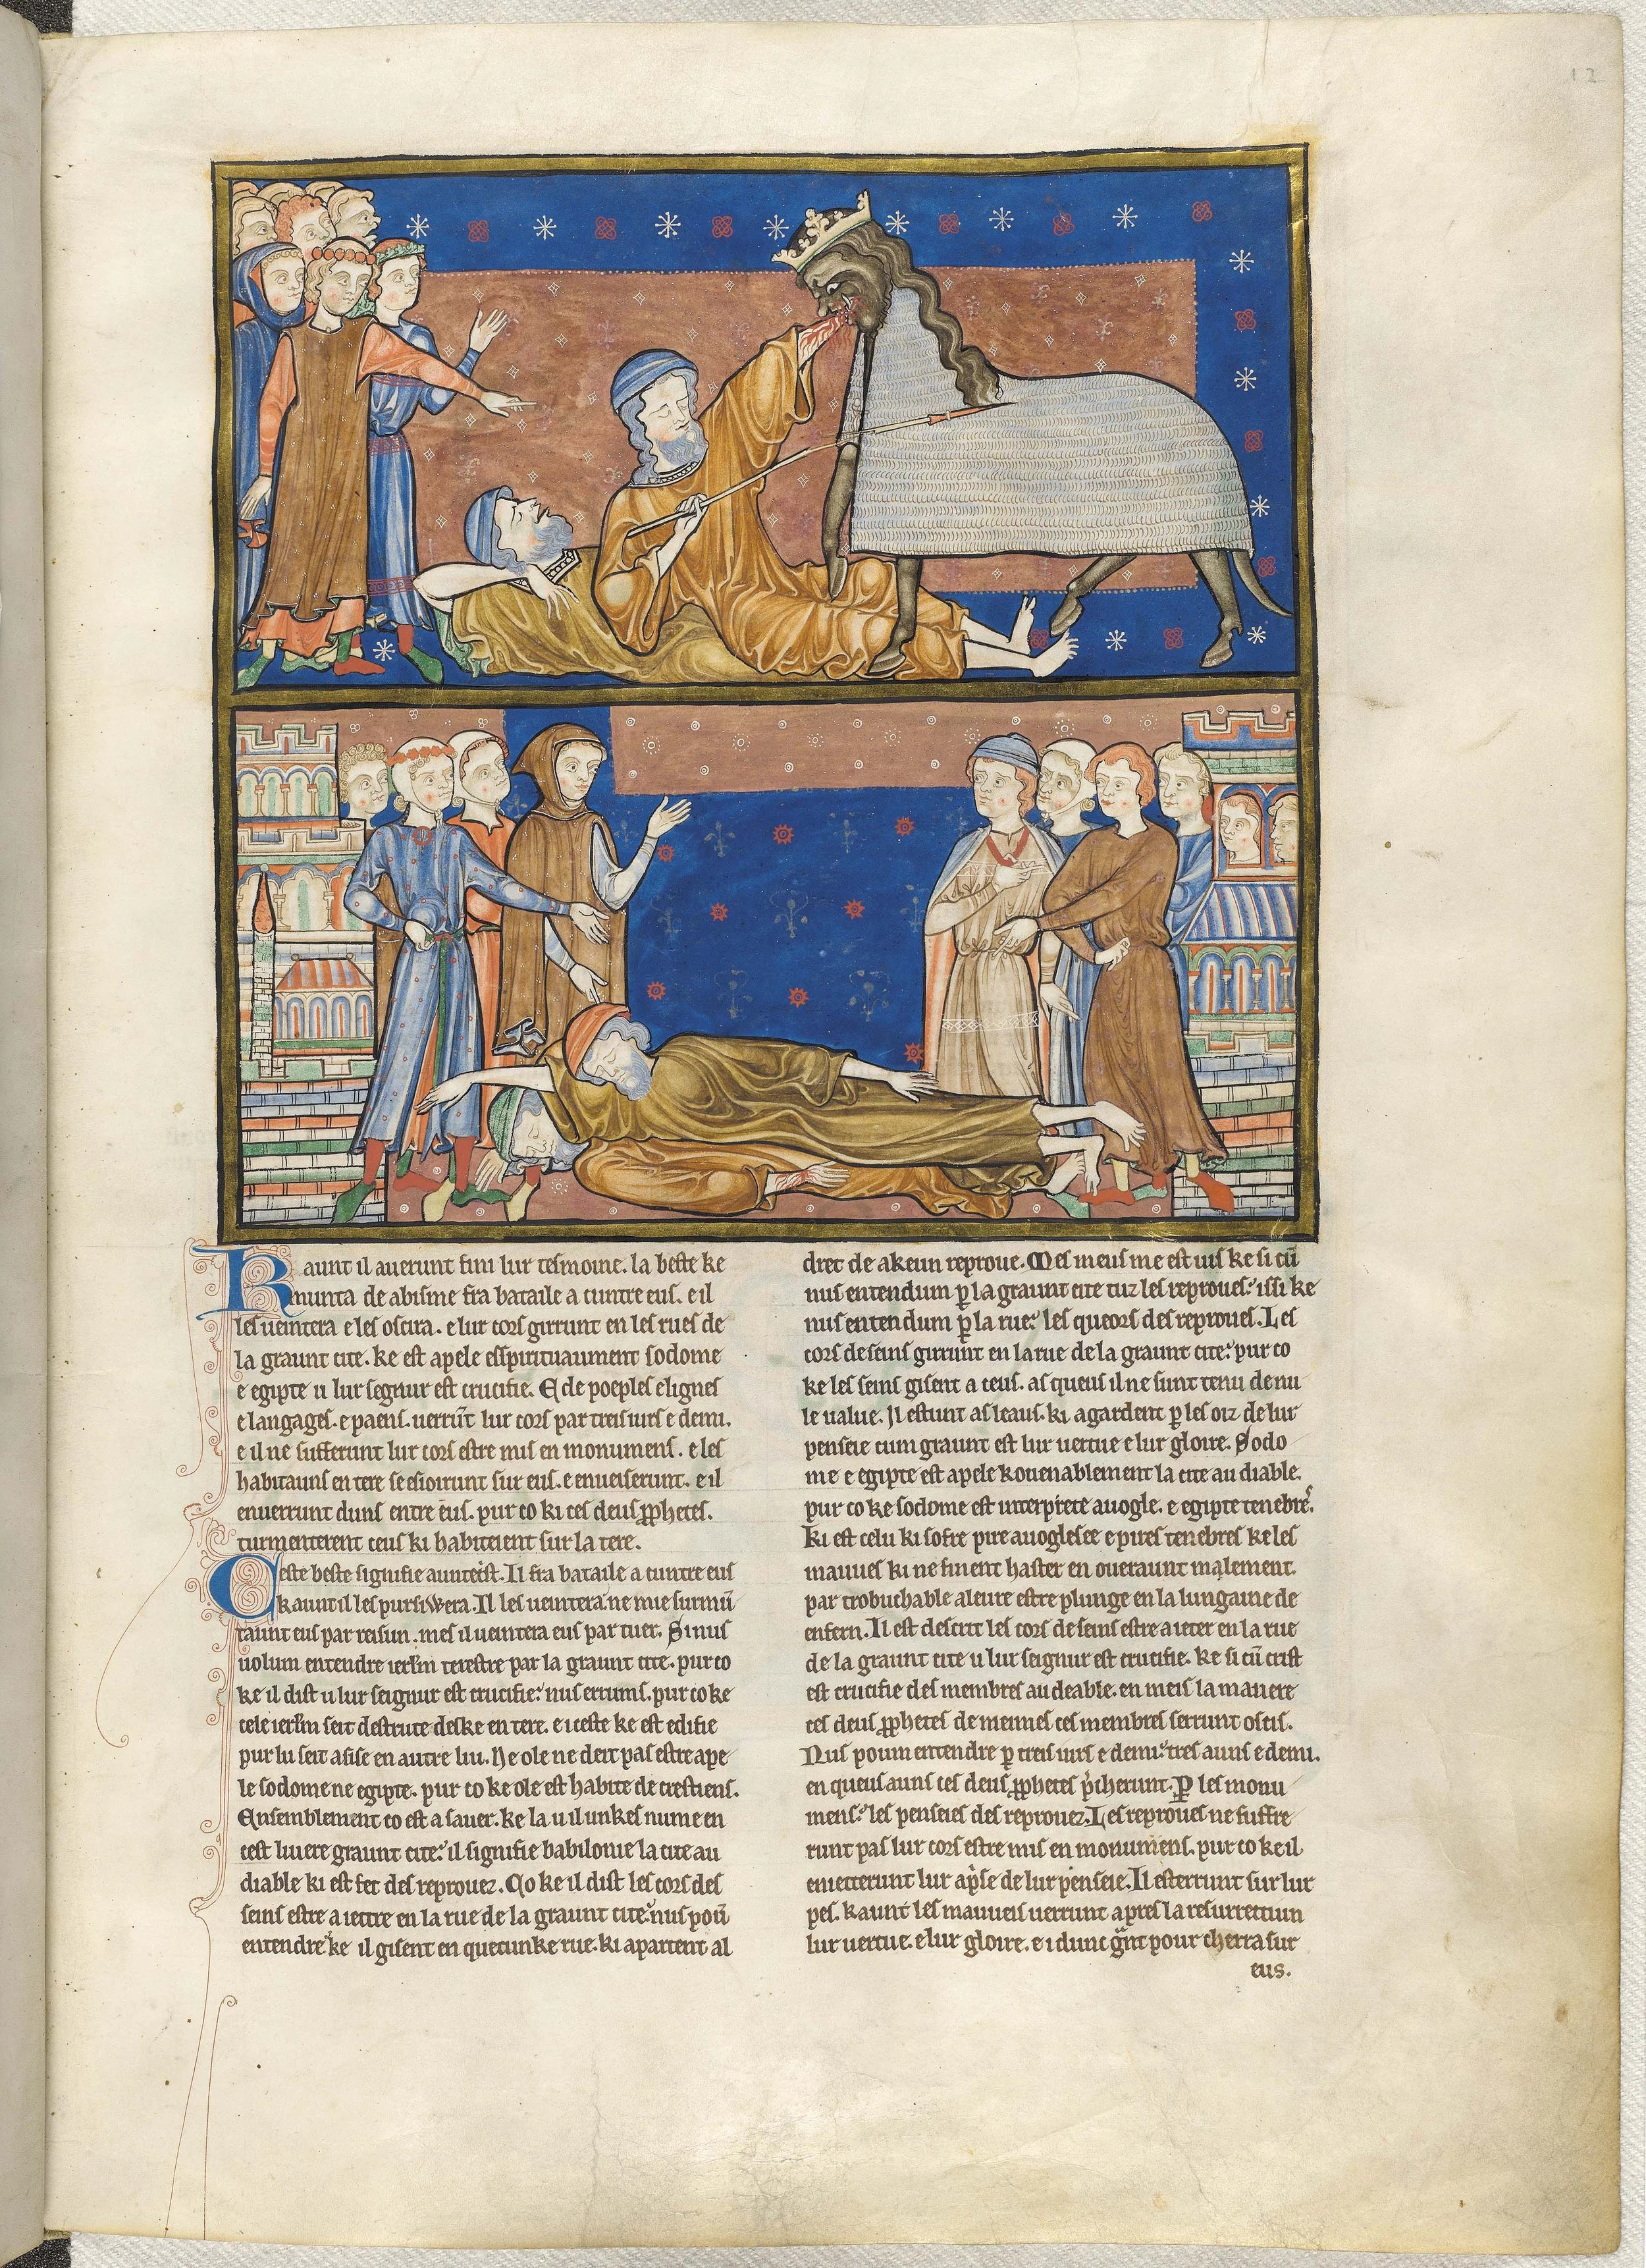 12
Kaunt il auerunt fini lur tesmoine. la beste ke
munta de abisme fra bataile a cuntre eus. e il
les ueintera e les oscira. e lur cors girrunt en les rues de
la graunt cite. ke est apele esspirituaument sodome
e egipte u lur segnur est crucifie. E de poeples e lignes
e langages. e paens. uerrūt lur cors par treis iurs e demi.
e il ne sufferunt lur cors estre mis en monumens. e les
habitauns en tere se esioirunt sur eus. e enueiserunt. e il
enuerrunt duns entre eus. pur co ki ces deus ꝓphetes.
turmenterent ceus ki habiteient sur la tere.
Ceste beste signifie auntecist. Il fra bataile a cuntre eus
kaunt il les pursiwera. Il les ueintera ne mie surmū
taunt eus par reisun. mes il ueintera eus par tuer. Si nus
uolum entendre ierl'm terestre par la graunt cite. pur co
ke il dist u lur seignur est crucifie: nus errums. pur co ke
cele ierl'm seit destrute deske en tere. e iceste ke est edifie
pur lu seit asise en autre liu. Ne ole ne deit pas estre ape
le sodome ne egipte. pur co ke ole est habite de crestiens.
Ensemblement co est a sauer. ke la u il unkes nume en
cest liuere graunt cite: il signifie babilonie la cite au
diable ki est fet des reprouez. Co ke il dist les cors des
seins estre a iettre en la rue de la graunt cite: nus poū
entendre ke il gisent en quecunke rue. ki apartent al
dret de akeun reproue. Mes meus me est uis ke si cū
nus entendum ꝑ la graunt cite tuz les reproues: issi ke
nus entendum ꝑ la rue: les queors des reproues. Les
cors de seins girrunt en la rue de la graunt cite: pur co
ke les seins gisent a ceus. as queus il ne sunt tenu de nu
le value. Il estunt as leaus. ki agardent ꝑ les oiz de lur
penseie cum graunt est lur uertue e lur gloire. Sodo
me e egipte est apele kouenablement la cite au diable.
pur co ke sodome est interprete auogle. e egipte tenebre.
Ki est celu ki sofre pire auoglesee e pires tenebres ke les
mauues ki ne finent haster en oueraunt malement.
par trobuchable aleure estre plunge en la lungaine de
enfern. Il est descrit les cors de seins estre a ieter en la rue
de la graunt cite u lur seignur est crucifie. ke si cū crist
est crucifie des membres au deable. en meis la manere
ces deus ꝓphetes de mennes ces membres serrunt oscis.
Nus poum entendre ꝑ treis iurs e demi: tres auns e demi.
en queus auns ces deus ꝓphetes p'cherunt. ꝑ les monu
mens: les penseies des reprouez. Les reproues ne suffre
runt pas lur cors estre mis en monumens. pur co ke il
emetterunt lur ap'se de lur penseie. Il esterrunt sur lur
pes. kaunt les mauueis uerrunt apres la resurrectiun
lur uertue. e lur gloire. e idunc g'nt pour cherra sur
eus.